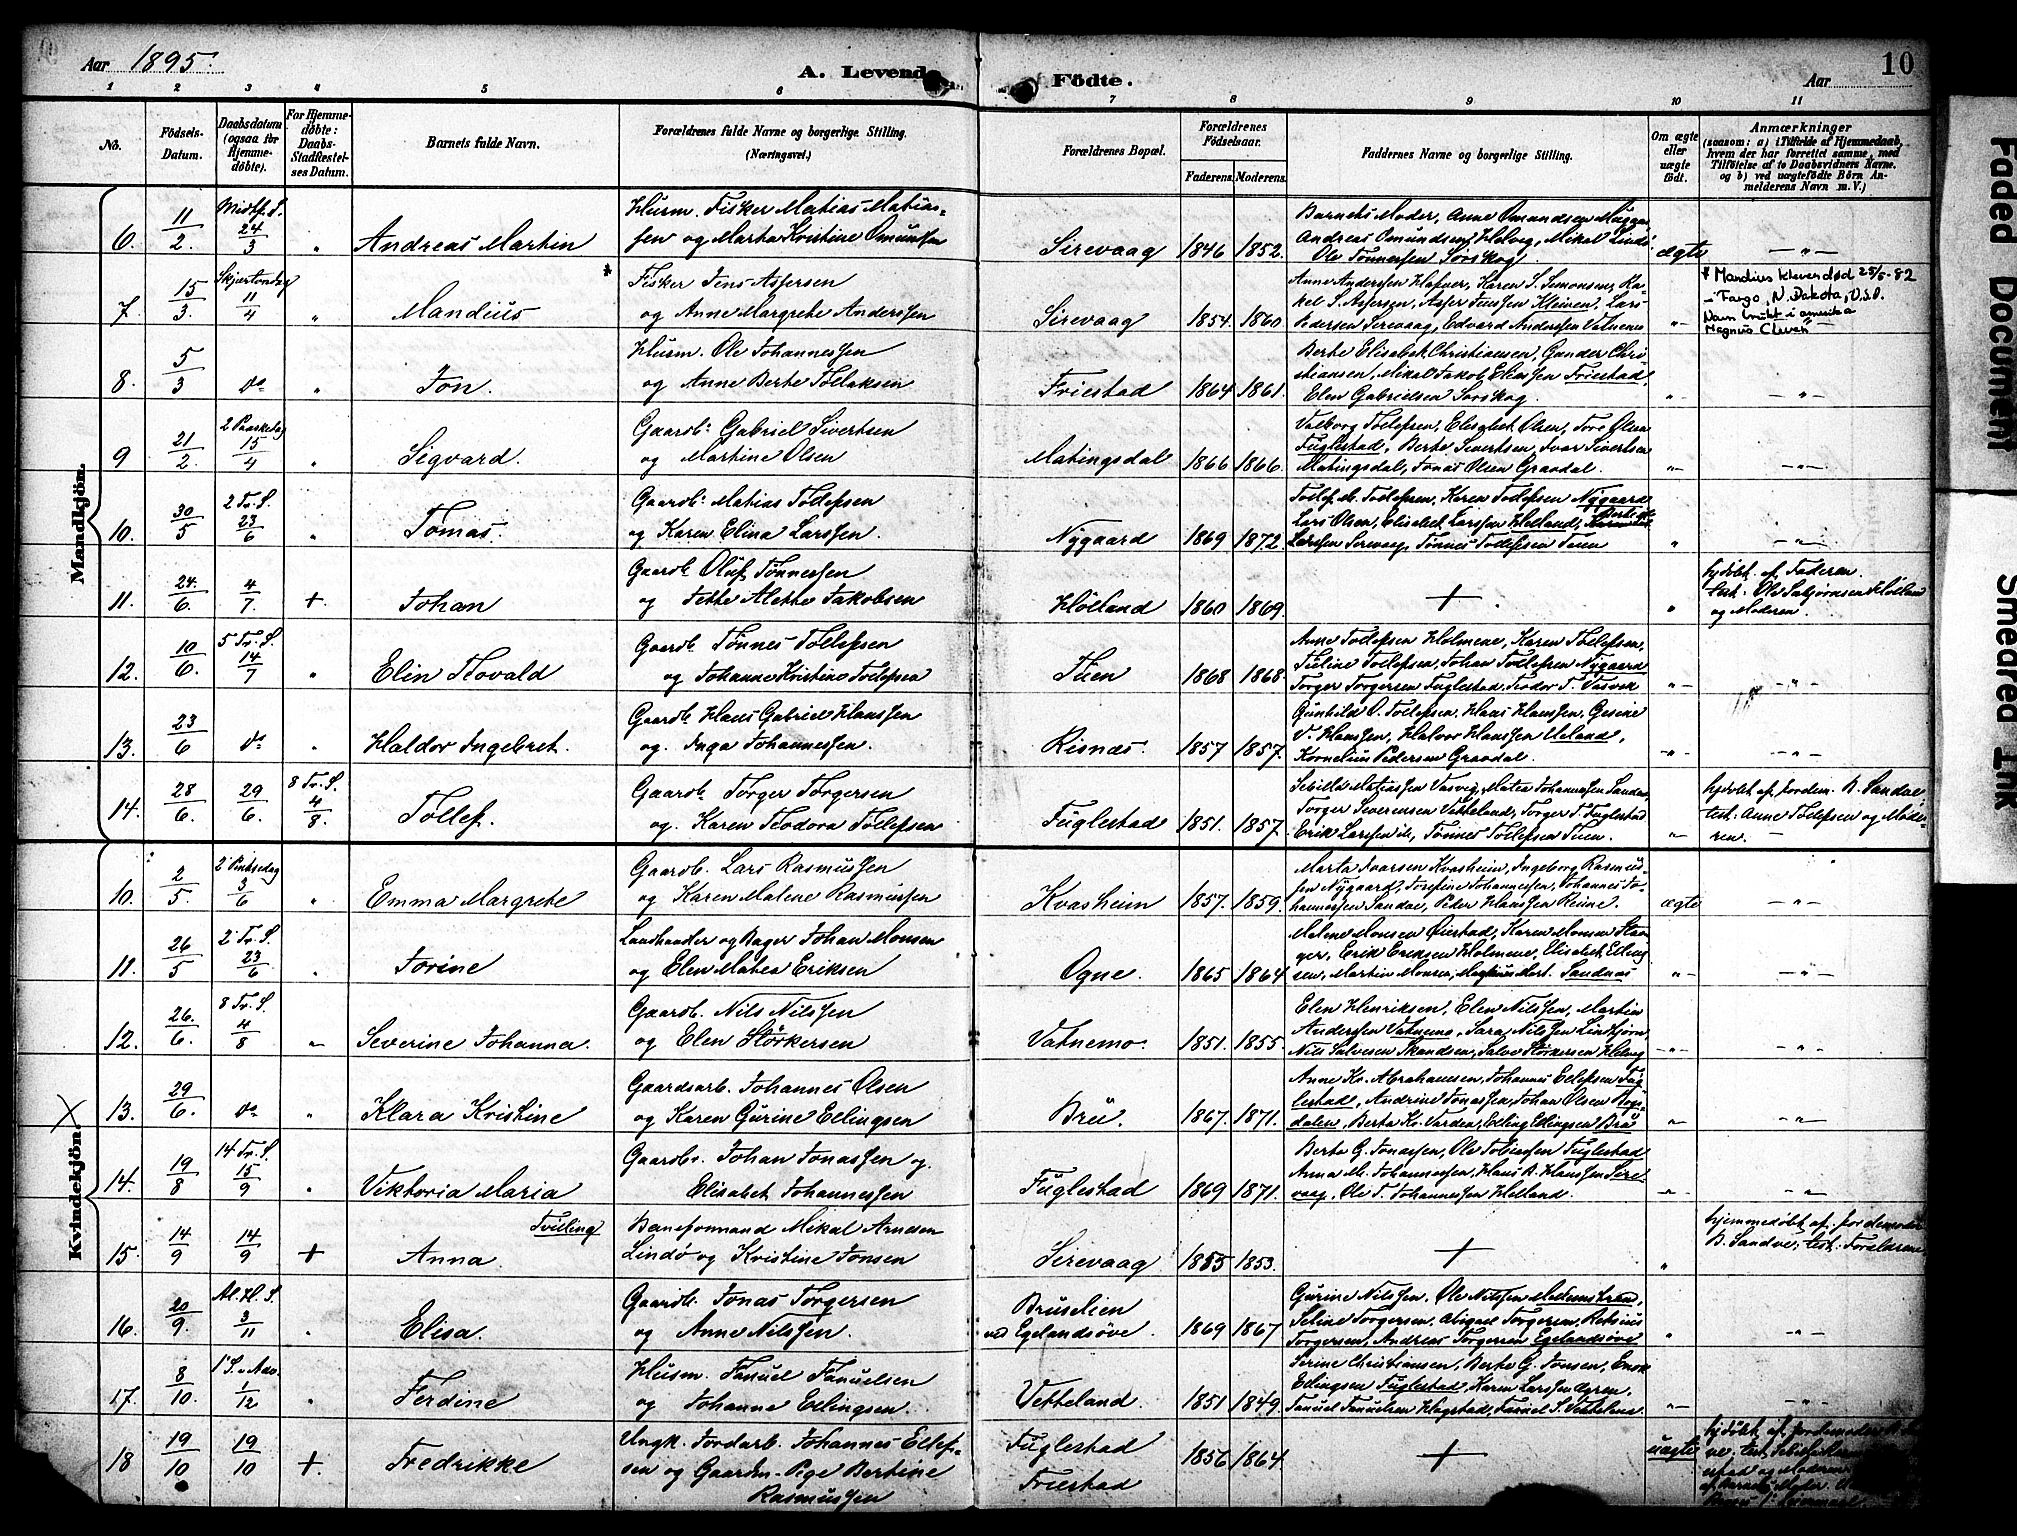 Aar 1895.
A. Levende Födte.
Aar
10
1 2 3 4 5 6 7 8 9 10 11
No.
Födsels-Datum.
Daabsdatum (ogsaa for Hjemmedøbte).
For Hjemmedøbte: Daabs-Stadfestelses Datum.
Barnets fulde Navn.
Forældrenes fulde Navne og borgerlige Stilling. (Næringsvei.)
Forældrenes Bopæl.
Forældrenes Födselsaar.
Faderens. Moderens.
Faddernes Navne og borgerlige Stilling.
Om ægte eller uægte født.
Anmærkninger
(saasom: a) i Tilfælde af Hjemmedaab, hvem der har forrettet samme, med Tilföielse af to Daabsvidners Navne. og b) ved uægtefödte Börn Anmelderens Navn m. V.)
Mandkjön.
6. 11/2. Midtf. S. 24/3 " Andreas Martin
Husm. Fisker Matias Matias-
sen og Marta Kristine Omundsen
Sirevaag 1846 1852.
Barnets Moder, Anne Omundsen
Andreas Omundsen, Mikal Lindø
Ole Tønnessen Sørskog.
ægte —"—
7. 15/3. Skjærtorsdag 11/4 " Mandius *
Fisker Jens Aspersen
og Anne Margrete Anderssen
Sirevaag 1854. 1860
Anne Anderssen, Karen S. Simonsen, Ra-
kel S. Aspersen, Asper Jenssen Kleiven, Lars
Pedersen Sirevaag, Edvard Anderssen Vatnemo
"—
* Mandius Kleven død 25/5-82
– Fargo, N. Dakota, U.S.A.
Navn brukt i amerika
Magnus Cleven
8. 5/3 do " Jon.
Husm. Ole Johannessen
og Anne Berte Tollaksen
Friestad 1864 1861.
Berte Elisabet Christiansen, Gunder Chri-
stiansen, Mikal Jakob Eliassen Friestad,
Elen Gabrielsen Sørskog.
"— —"—
9 21/2. 2 Paaskedag 15/4 " Sigvard.
Gaardb. Gabriel Sivertsen
og Martine Olsen
Matingsdal 1866 1866.
Valborg Tollefsen, Elisabet Olsen, Tore Olsen
Fuglestad, Berte Sivertsen, Ivar Sivertsen
Matingsdal, Jonas Olsen Graadal.
"— —"—
10. 30/5 2 Tr. S. 23/6 " Tomas.
Gaardb. Matias Tollefsen
og Karen Elina Larssen.
Nygaard 1869 1872
Tollef M. Tollefsen, Karen Tollefsen Nygaard
Lars Olsen, Elisabet Larssen Holland,
Larssen Sirevaag, Tønnes Tollefsen Tuen
" —"—
11. 24./6. 4/7. +. Johan
Gaardb. Oluf Tønnessen
og Jette Alette Jakobsen
Hølland 1860 1869
+
"
hjdøbt. af Faderen.
test. Ole Asbjørnsen Hølland
og Moderen.
12. 10/6. 5 Tr. S. 14/7 " Elin Thovald
Gaardb. Tønnes Tollefsen
og Johanne Kristine Tollefsen
Tuen 1868 1868.
Anne Tollefsen Holmene, Karen Tollefsen,
Juline Tollefsen, Johan Tollefsen Nygaard
Torger Torgersen Fuglestad, Teodor T. Vasvik
"— —"—
13. 23/6 do " Haldor Ingebret.
Gaardb. Hans Gabriel Hanssen
og. Inga Johannessen.
Risnæs. 1857 1857.
Gunhild O. Tollefsen, Hans Hanssen, Gesine
V. Hanssen, Halvor Hanssen Ueland,
Kornelius Pedersen Graadal.
"— —"—
14. 28/6. 29/6. 8 Tr. S. 4/8. Tollef.
Gaardb. Torger Torgersen
og. Karen Teodora Tollefsen
Fuglestad 1851. 1857.
Sebille Matiassen Vasvig, Matea Johannessen Sandve,
Torger Severinsen Vetteland, Torger T. Fuglestad
Erik Larssen do, Tønnes Tollefsen Tuen.
"—
hjdøbt af jordem. B. Sandve
test. Anne Tollefsen og Mode-
ren. —
Kvindekjön.
10. 2/5. 2 Pintsedag 3/6 " Emma Margrete
Gaardb. Lars Rasmussen
og Karen Malene Rasmussen
Kvasheim 1857. 1859.
Marta Ivarsen Kvasheim, Ingeborg Rasmus-
sen Nygaard, Josefine Johannessen, Johannes Jo-
hannessen Sandve, Peder Hanssen Reime.
ægte —"—
11. 26/5 2 Tr. S. 23/6 " Jorine
Landhandler og Bager Johan Monsen
og Elen Matea Eriksen
Ogne. 1865 1864
Malene Monsen Øiestad, Karen Monsen Stavan-
ger, Erik Eriksen Holmene, Elisabet Elling-
sen, Martin Monsen, Sandnes
"— —"—
12. 26./6. 8 Tr. S. 4/8 " Severine Johanna.
Gaardb. Nils Nilssen
og Elen Størkersen
Vatnemo. 1851. 1855.
Elen Henriksen, Elen Nilssen, Martin
Anderssen Vatnemo, Sara Nilssen Lindtjørn,
Nils Salvesen Skandsen, Salve Størkersen Helvig
—"— —"—
13. 29/6. do " Klara Kristine
Gaardsarb. Johannes Olsen
og Karen Gurine Ellingsen
Bru. 1867. 1871.
Anne Kr. Abrahamsen, Johannes Ellefsen Fug-
lestad, Andrine Jonassen, Johan Olsen
dalen, Berta Kr. Varden, Elling Ellingsen Bru
"— —"—
14. 19/8 14 Tr. S. 15/9 " Viktoria Maria
Gaardbr. Johan Jonassen og.
Elisabet Johannessen
Fuglestad 1869 1871.
Berte G. Jonassen, Ole Tobiassen Fuglestad
Anna M. Johannessen, Hans B. Hanssen Sire-
vaag, Ole T. Johannessen Holland.
"— —"—
15. 14/9 14/9 + Anna. Tvilling
Baneformand Mikal Arnesen
Lindø og Kristine Jonsen
Sirevaag 1855 1853.
+
"
hjemmedøbt af. jordemoder
B. Sandve, test: Forældrene
16. 20/9. Al. H. S. 3/11 " Elisa.
Gaardb. Jonas Torgersen
og Anne Nilssen.
Bruselien
ved Egelandsøve. 1869 1867
Gurine Nilssen, Ole Nilssen
Seline Torgersen, Abigael Torgersen, Retsius
Torgersen, Andreas Torgersen Egelandsøve
" —"—
17. 8/10. 1 S. i Adv. 1/12 " Ferdine
Husm. Fanuel Fanuelsen
og Johanne Ellingsen.
Vetteland. 1851 1849.
Serine Christiansen, Berte G. Jonsen, Enok
Ellingsen Fuglestad, Karen Larssen Øgren,
Fanuel Fanuelsen Hagestad, Fanuel S. Vetteland.
"— —"—
18 19/10 19/10 +. Fredrikke
Ungk. Jordarb. Johannes Ellef-
sen og Gaardm. Pige Bertine
Rasmussen
Fuglestad
Friestad 1856 1864.
+
uægte
hjdøbt af jordemoder
og Moderen
Faded Document
Smeared Ink